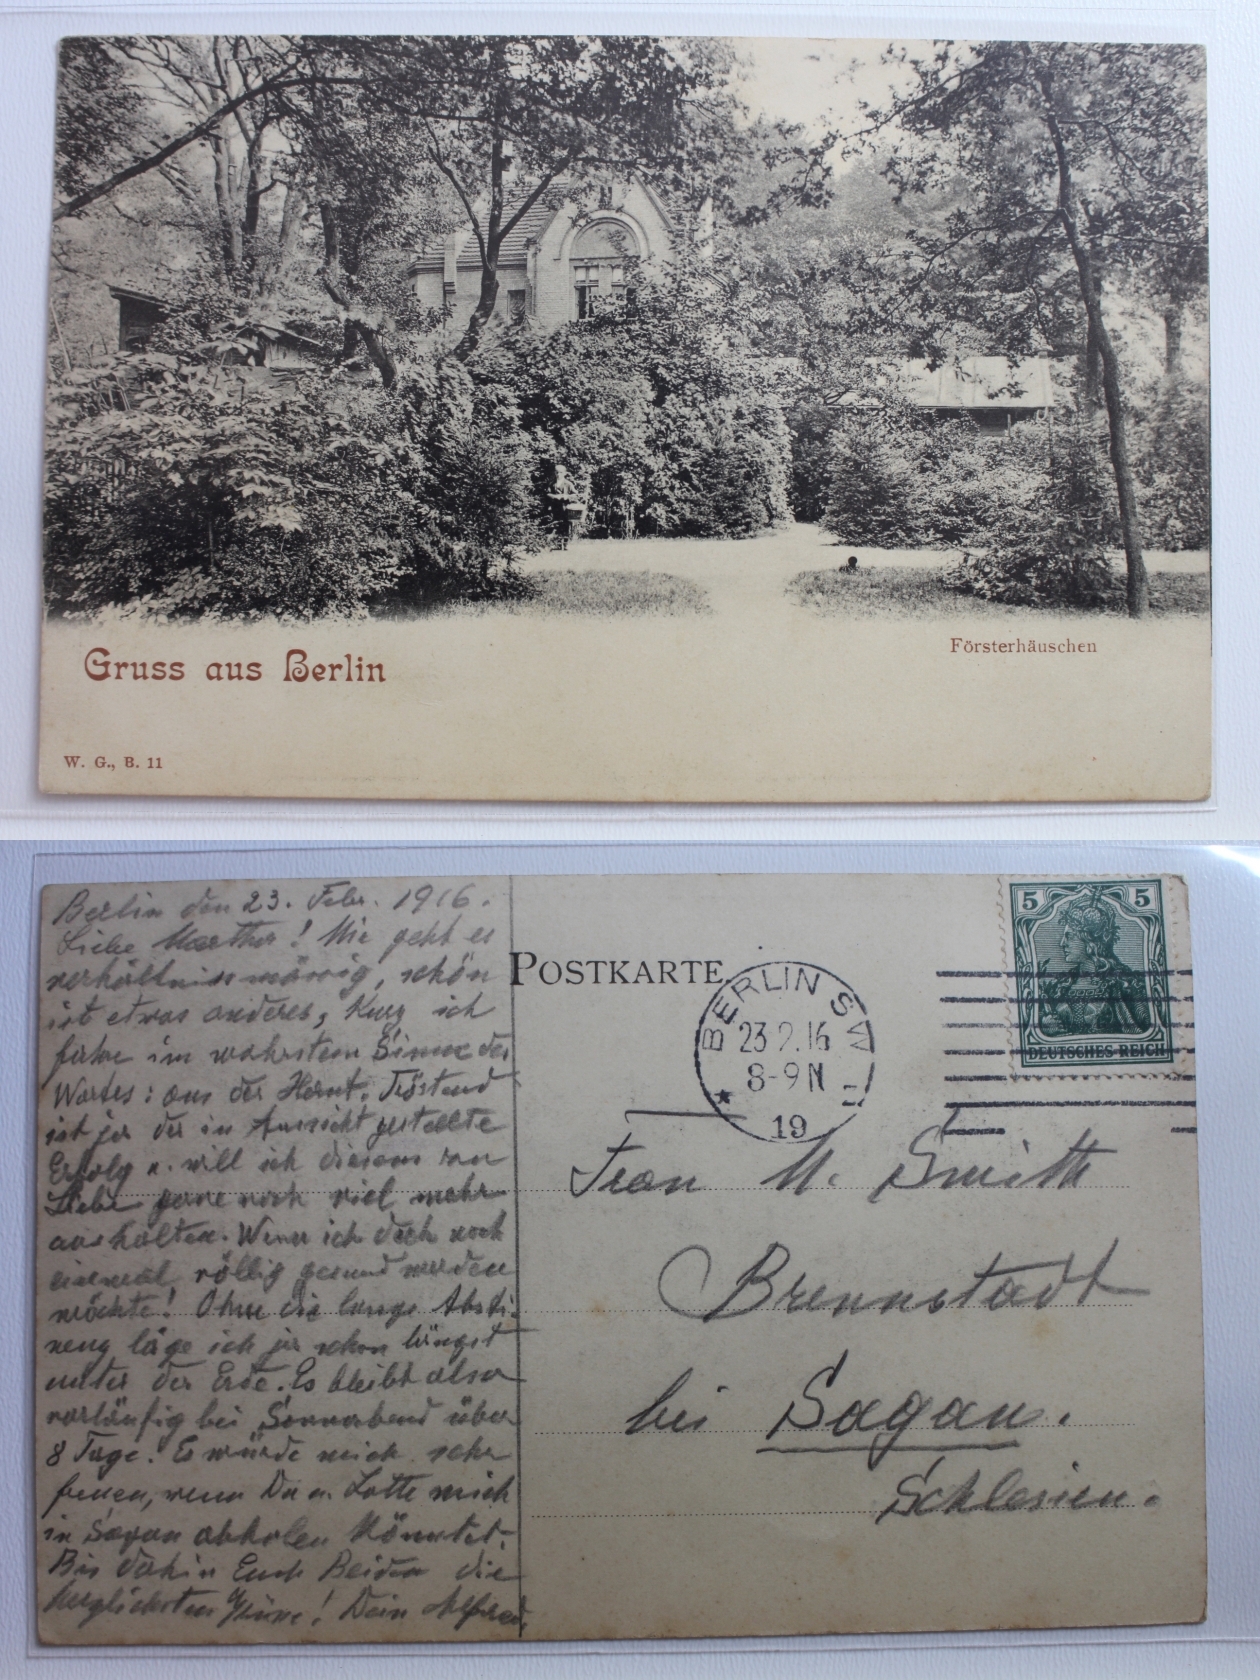 Gruss aus Berlin
Försterhäuschen
W. G., B. 11
Berlin den 23. Febr. 1916.
Liebe Martha! Mir geht es
verhältnismässig, schön
ist etwas anderes, Kurz ich
fahre im wahrsten Sinne des
Wortes: aus der Haut. Tröstend
ist ja der in Aussicht gestellte
Erfolg u. will ich diesem zu
Liebe gerne noch viel mehr
aushalten. Wenn ich doch noch
einmal völlig gesund werden
möchte! Ohne die lange Absti-
nenz läge ich ja schon längst
unter der Erde. Es bleibt also
vorläufig bei Sonnabend über
8 Tage. Es würde mich sehr
freuen, wenn Du u. Lotte mich
in Sagan abholen könntet.
Bis dahin Euch Beiden die
herzlichsten Grüsse! Dein Alfred.
POSTKARTE
BERLIN SW
23.2.16
8-9 N
19
5 5
DEUTSCHES REICH
Frau M. Smith
Brennstadt
bei Sagan.
Schlesien.